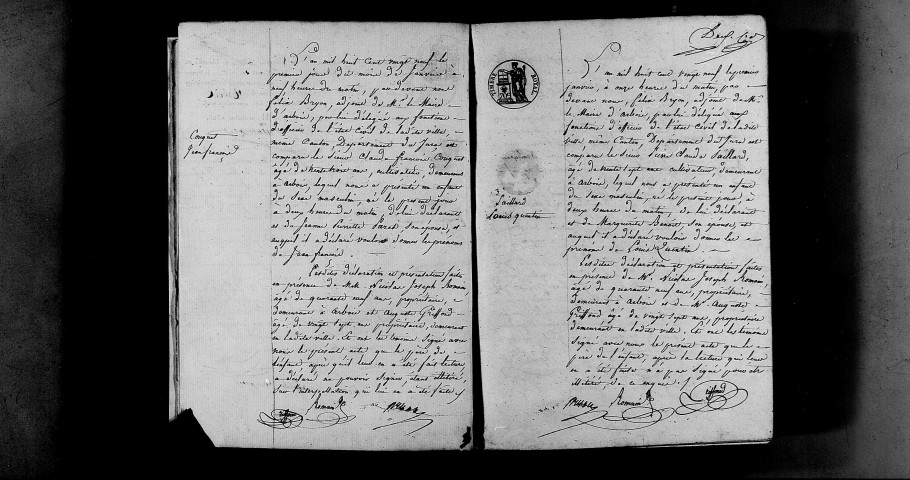 Conquet
Jean françois
L'an mil huit cent vingt neuf le
premier jour du mois de Janvier à
neuf heure du matin, par devant nous
Félix Bryon, adjoint de Mr. le Maire
d'arbois, par lui délégué aux fonctions
d'officier de l'état Civil de ladite ville,
même Canton, Département du Jura est
comparu le Sieur Claude françois
agé de trente trois ans, cultivateur, demeurant
à arbois, lequel nous a présenté un enfant
du Sexe masculin, né le présent jour
à deux heure du matin, de lui déclarant
et de Jeanne Pierrette son épouse, et
auquel il a déclaré vouloir donner les prenoms
de Jean françois.
Lesdites déclaration et présentation faites
en présence de Nicolas Joseph Romain,
âgé de quarante neuf ans, propriétaire,
demeurant à arbois et Auguste Griffond
âgé de vingt sept ans, propriétaire, demeurant
en ladite ville. Et ont les témoins Signé avec
nous le présent acte que le père de
l'enfant après qu'il leur en a été fait lecture,
a déclaré ne pouvoir Signer, étant illitéré,
sur l'interpellation qui lui en a été faite.
Romain
TIMBRE ROYAL
3
Paillard
Louis quentin
L'an mil huit cent vingt neuf le premier
janvier, à onze heure du matin, par
devant nous, Félix Bryon, adjoint de Mr.
le Maire d'Arbois, par lui délégué aux
fonctions d'officier de l'état Civil de ladite
ville, même Canton, Département du Jura est
comparu le Sieur Pierre Claude Paillard,
âgé de trente sept ans cultivateur demeurant
à arbois, lequel nous a présenté un enfant
du Sexe masculin, né le présent jour à
deux heure du matin, de lui déclarant
et de Marguerite Benoit, Son épouse, et
auquel il a déclaré vouloir donner les
prenoms de Louis Quentin.
Lesdites déclaration et présentation faites
en présence de Mr. Nicolas Joseph Romain,
âgé de quarante neuf ans, propriétaire,
demeurant à Arbois et de Mr. Auguste
Griffond âgé de vingt sept ans, propriétaire
demeurant en ladite ville. Et ont les témoins
Signé avec nous le présent acte que le
père de l'enfant, après la lecture qui leur
en a été faite n'a pas Signé pour être
illitéré de ce enquis.
Romain
Griffond